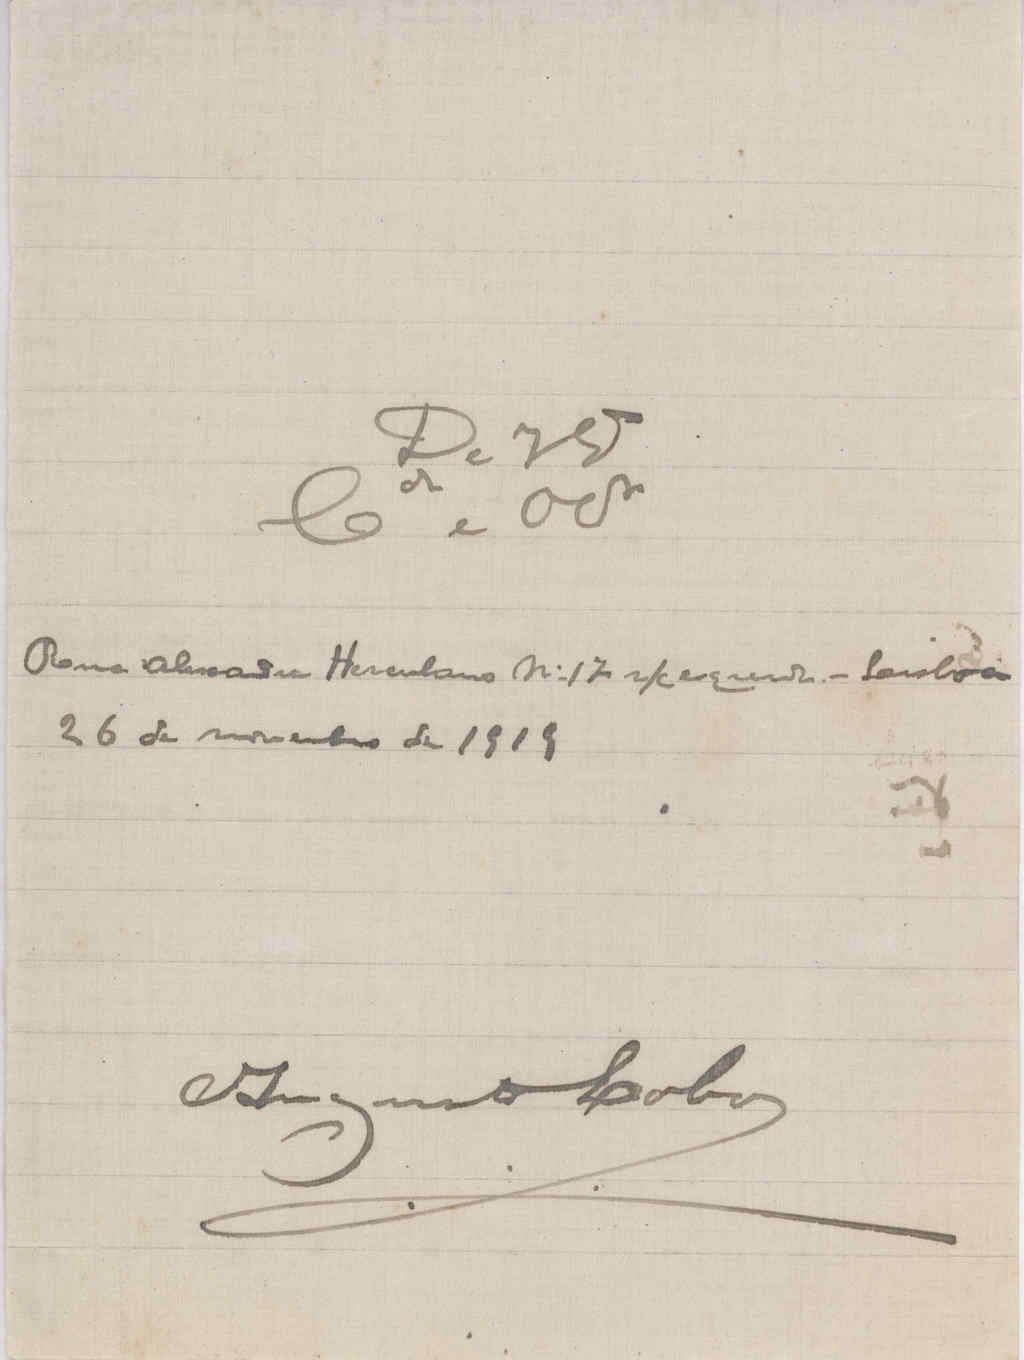 De V. Ex.
C.do e Obr.
Rua Alexandre Herculano Nº 17 r/c esquerdo - Lisboa
26 de novembro de 1919
Augusto Lobo